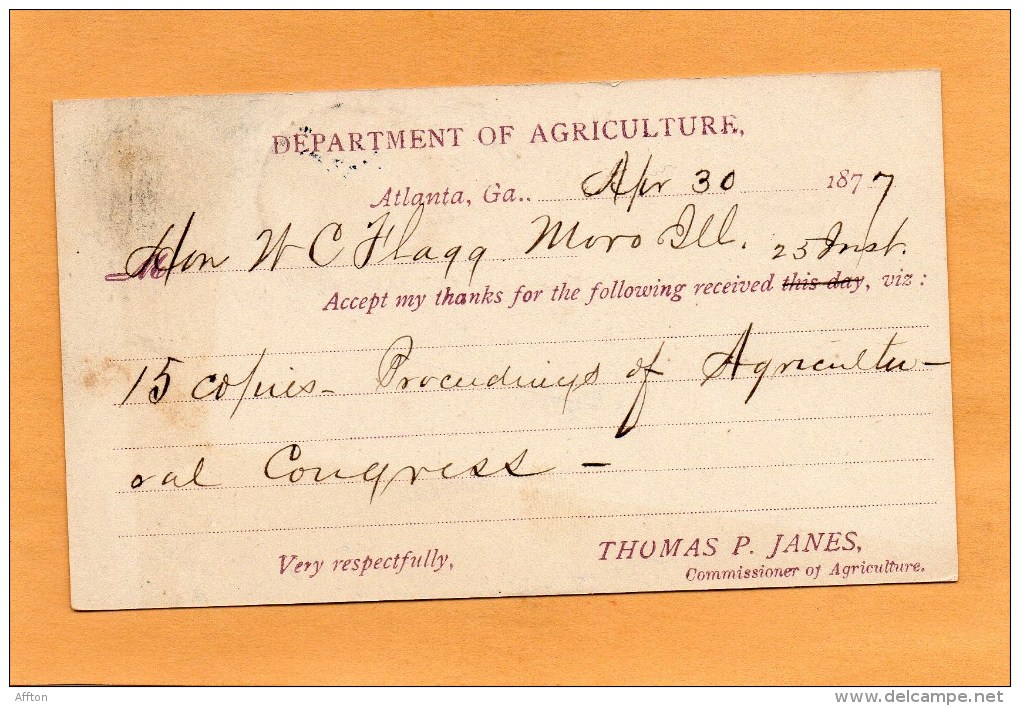 DEPARTMENT OF AGRICULTURE,
Atlanta, Ga.. Apr 30 1877
M Hon W C Flagg Moro Ill. 25 Inst.
Accept my thanks for the following received this day, viz:
15 copies - Proceedings of Agricultu-
ral Congress -
Very respectfully,
THOMAS P. JANES,
Commissioner of Agriculture.
Affton
delcampe.net